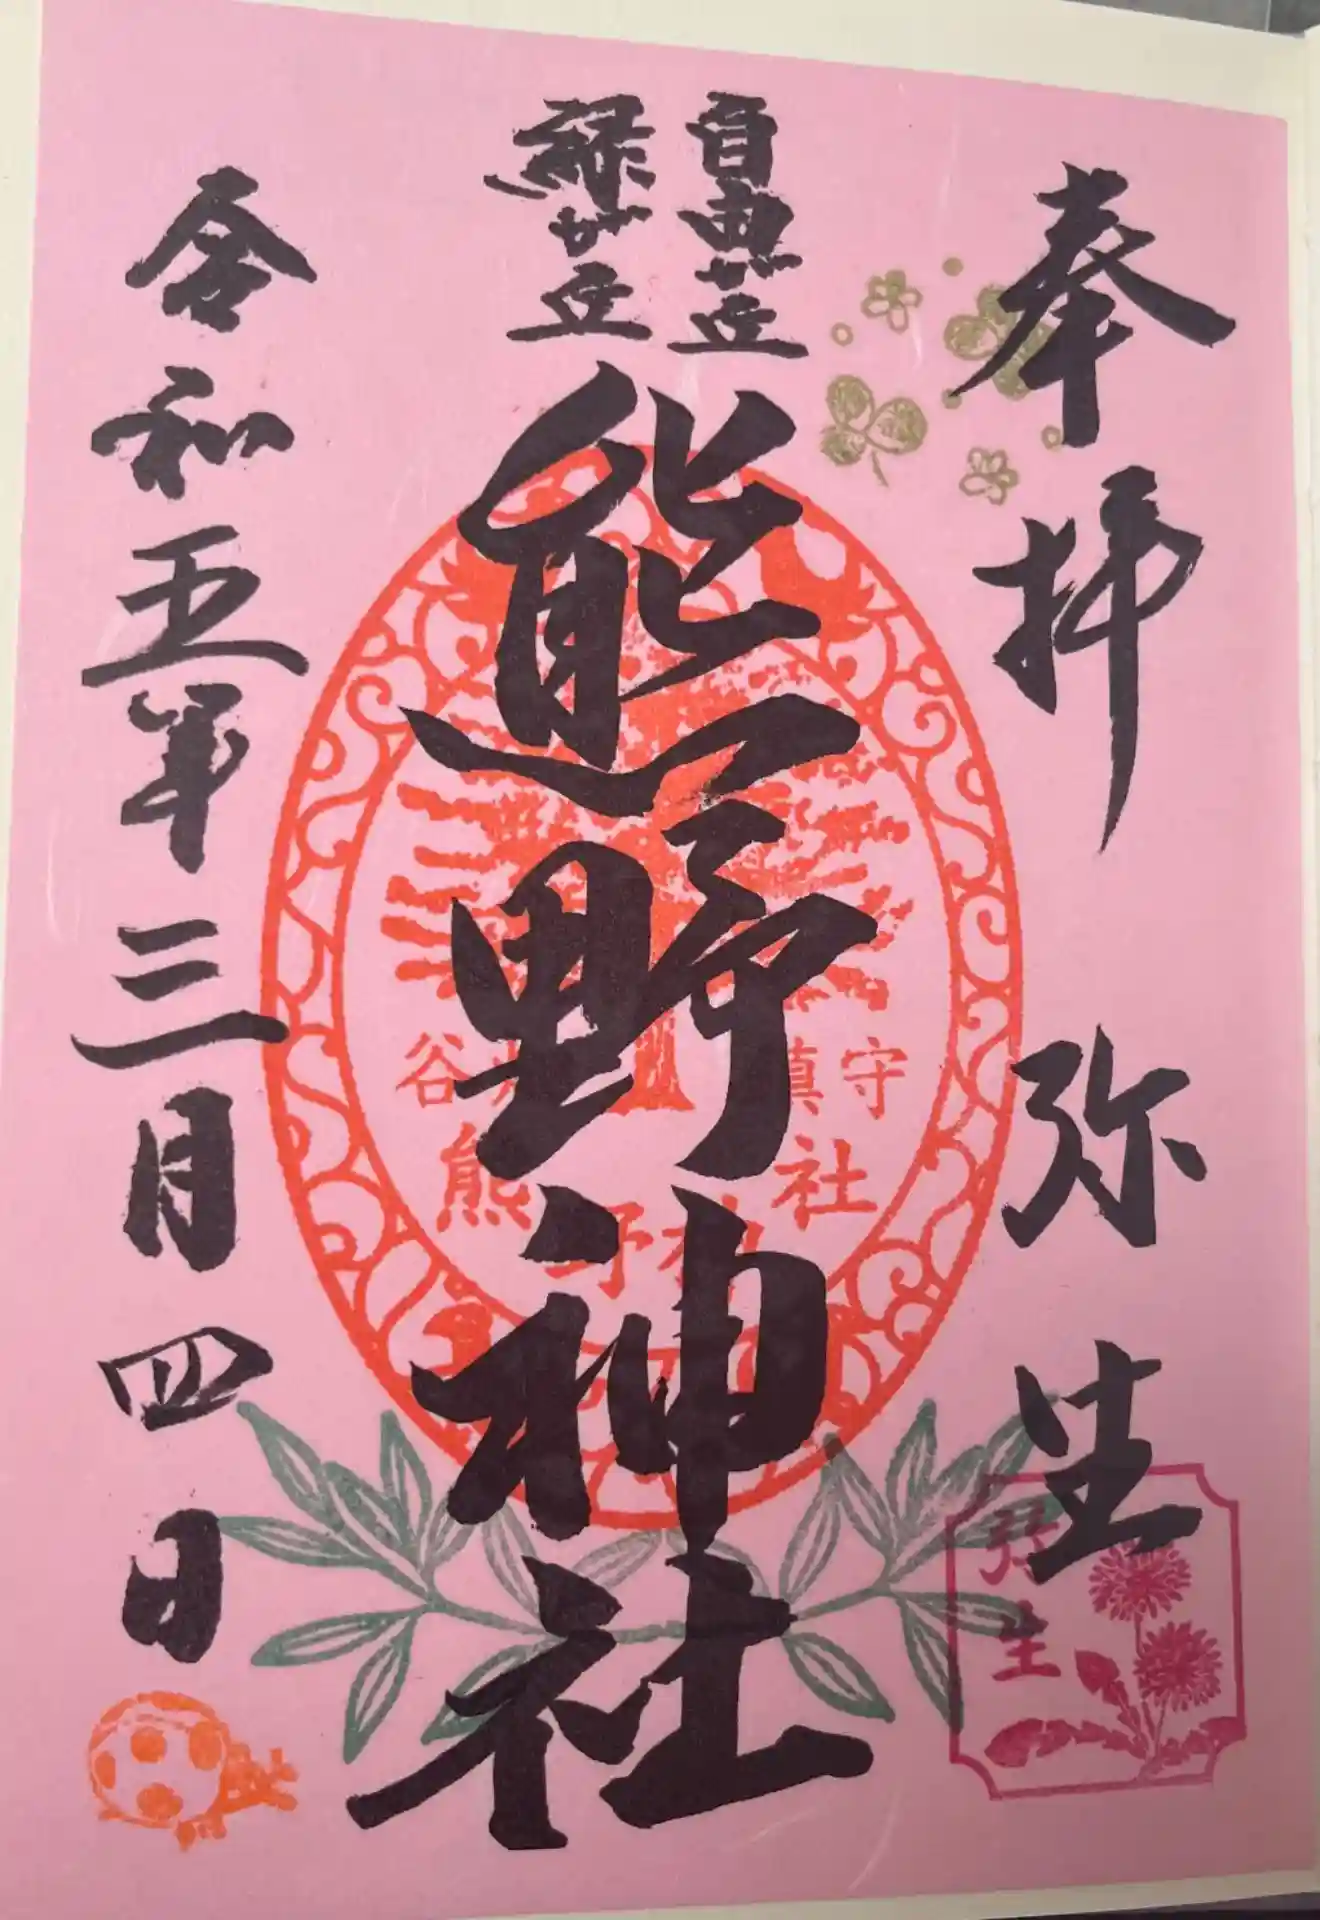 奉拝 弥生
弥生
自由が丘
緑が丘
熊野神社
鎮守
谷
熊野神社
令和五年三月四日